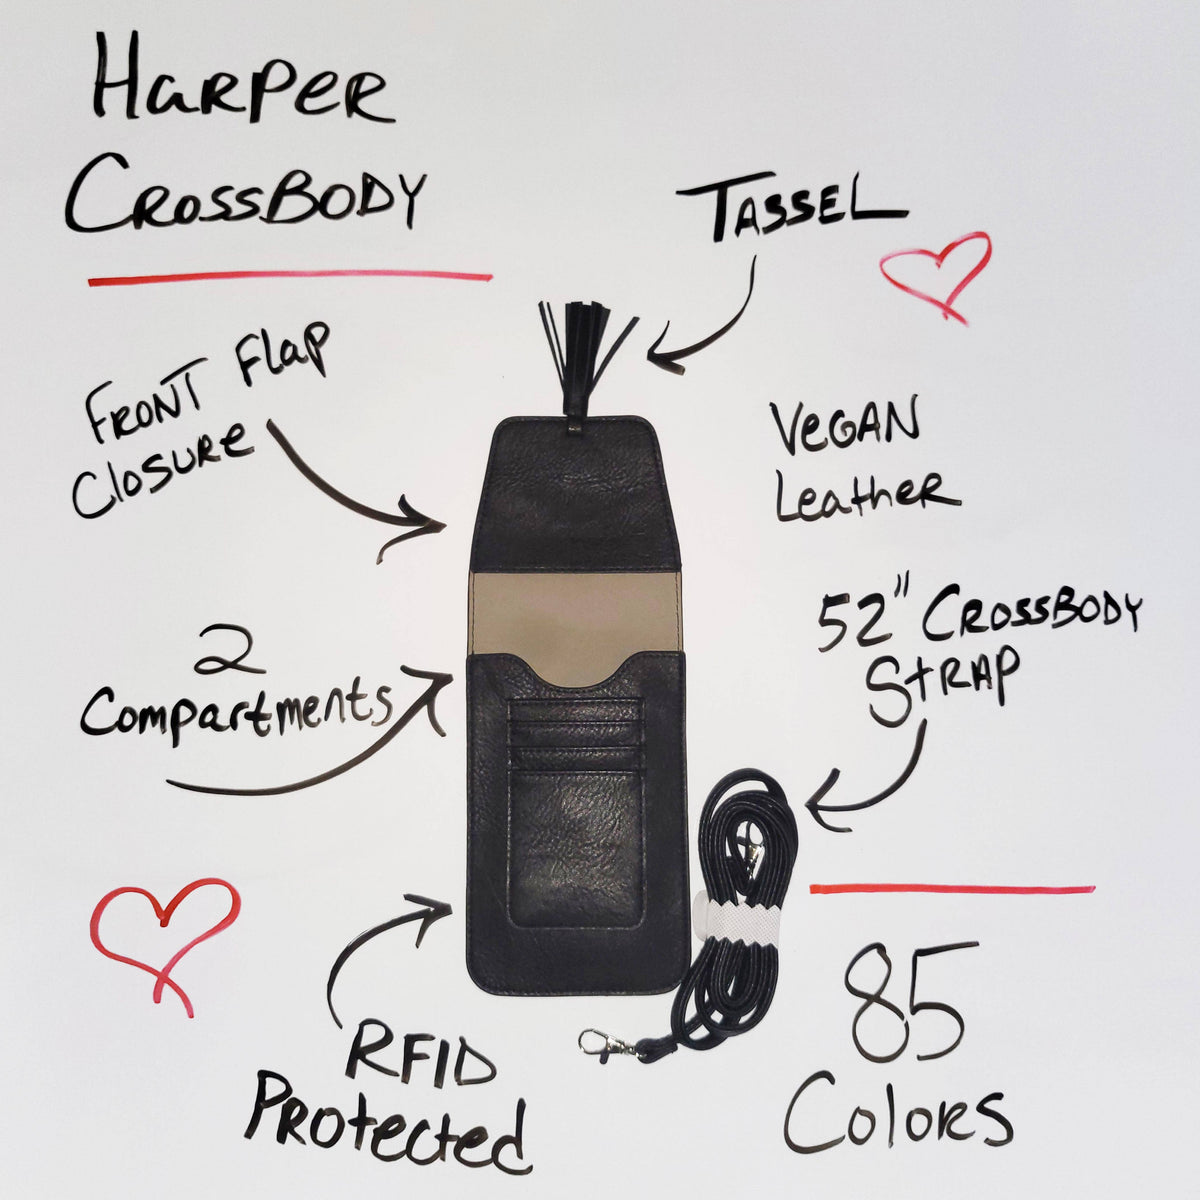 HARPER
CROSSBODY
TASSEL
FRONT Flap
Closure
VEGAN
Leather
52" CROSSBODY
STRAP
2
Compartments
85
Colors
RFID
Protected